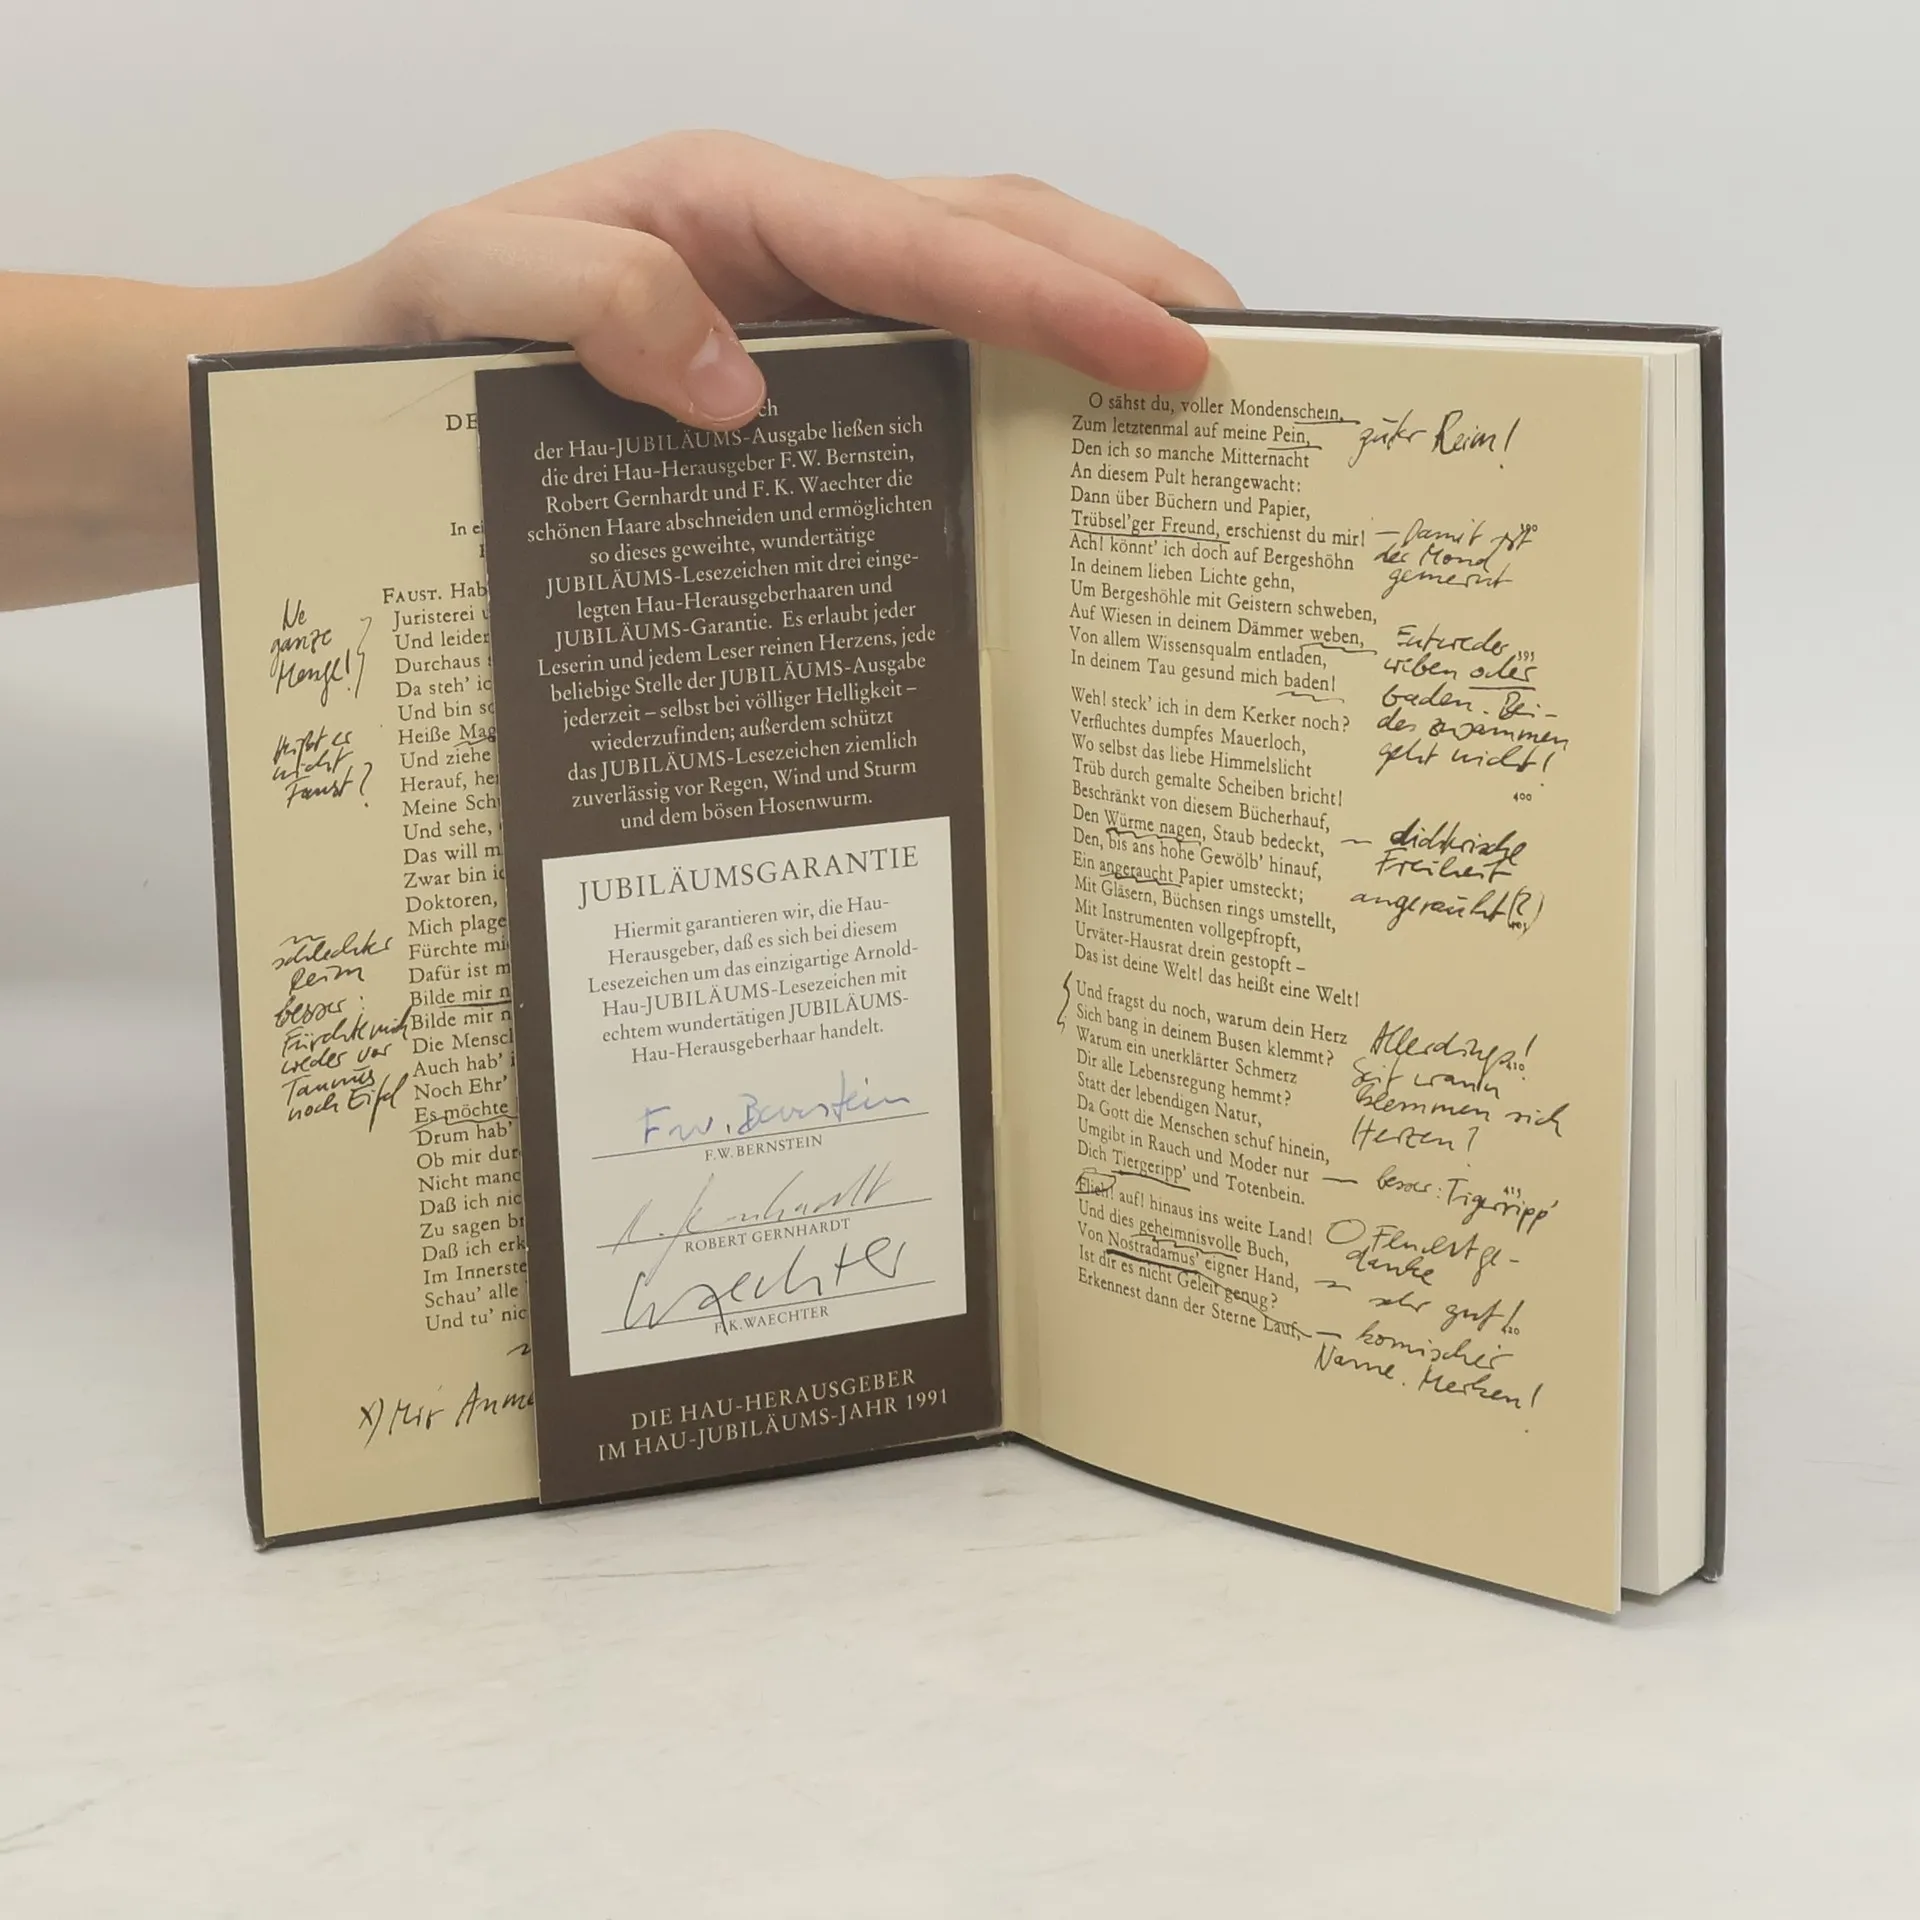 DE
In ei
FAUST. Hab
Juristerei u
Und leider
Durchaus s
Da steh' ic
Und bin so
Heiße Mag
Und ziehe
Herauf, he
Meine Sch
Und sehe,
Das will m
Zwar bin ic
Doktoren,
Mich plage
Fürchte mi
Dafür ist m
Bilde mir n
Bilde mir n
Die Mensch
Auch hab' i
Noch Ehr'
Es möchte
Drum hab'
Ob mir dur
Nicht manc
Daß ich nic
Zu sagen br
Daß ich erk
Im Innerste
Schau' alle
Und tu' nic
Ne
ganze
Menge!
Heißt er
nicht
Faust?
schlechter
Reim
besser:
Fürchte mich
weder vor
Taunus
noch Eifel
x) Mir Anme
ch
der Hau-JUBILÄUMS-Ausgabe ließen sich
die drei Hau-Herausgeber F.W. Bernstein,
Robert Gernhardt und F. K. Waechter die
schönen Haare abschneiden und ermöglichten
so dieses geweihte, wundertätige
JUBILÄUMS-Lesezeichen mit drei einge-
legten Hau-Herausgeberhaaren und
JUBILÄUMS-Garantie. Es erlaubt jeder
Leserin und jedem Leser reinen Herzens, jede
beliebige Stelle der JUBILÄUMS-Ausgabe
jederzeit – selbst bei völliger Helligkeit –
wiederzufinden; außerdem schützt
das JUBILÄUMS-Lesezeichen ziemlich
zuverlässig vor Regen, Wind und Sturm
und dem bösen Hosenwurm.
JUBILÄUMSGARANTIE
Hiermit garantieren wir, die Hau-
Herausgeber, daß es sich bei diesem
Lesezeichen um das einzigartige Arnold-
Hau-JUBILÄUMS-Lesezeichen mit
echtem wundertätigen JUBILÄUMS-
Hau-Herausgeberhaar handelt.
F.W. Bernstein
F.W. BERNSTEIN
R. Gernhardt
ROBERT GERNHARDT
Waechter
F.K. WAECHTER
DIE HAU-HERAUSGEBER
IM HAU-JUBILÄUMS-JAHR 1991
O sähst du, voller Mondenschein,
Zum letztenmal auf meine Pein,
Den ich so manche Mitternacht
An diesem Pult herangewacht:
Dann über Büchern und Papier,
Trübsel'ger Freund, erschienst du mir!
Ach! könnt' ich doch auf Bergeshöhn
In deinem lieben Lichte gehn,
Um Bergeshöhle mit Geistern schweben,
Auf Wiesen in deinem Dämmer weben,
Von allem Wissensqualm entladen,
In deinem Tau gesund mich baden!
Weh! steck' ich in dem Kerker noch?
Verfluchtes dumpfes Mauerloch,
Wo selbst das liebe Himmelslicht
Trüb durch gemalte Scheiben bricht!
Beschränkt von diesem Bücherhauf,
Den Würme nagen, Staub bedeckt,
Den, bis ans hohe Gewölb' hinauf,
Ein angeraucht Papier umsteckt;
Mit Gläsern, Büchsen rings umstellt,
Mit Instrumenten vollgepfropft,
Urväter-Hausrat drein gestopft –
Das ist deine Welt! das heißt eine Welt!
Und fragst du noch, warum dein Herz
Sich bang in deinem Busen klemmt?
Warum ein unerklärter Schmerz
Dir alle Lebensregung hemmt?
Statt der lebendigen Natur,
Da Gott die Menschen schuf hinein,
Umgibt in Rauch und Moder nur
Dich Tiergeripp' und Totenbein.
Flieh! auf! hinaus ins weite Land!
Und dies geheimnisvolle Buch,
Von Nostradamus' eigner Hand,
Ist dir es nicht Geleit genug?
Erkennest dann der Sterne Lauf,
guter Reim!
– Damit ist 390
der Mond
gemeint
Entweder 395
weben oder
baden. Bei-
des zusammen
geht nicht!
400
– dichterische
Freiheit
angerauht(?)
405
Allerdings! 410
Seit wann
klemmen sich
Herzen?
– besser: Tigeripp' 415
O Fluchtge-
danke
sehr gut! 420
– komischer
Name. Merken!